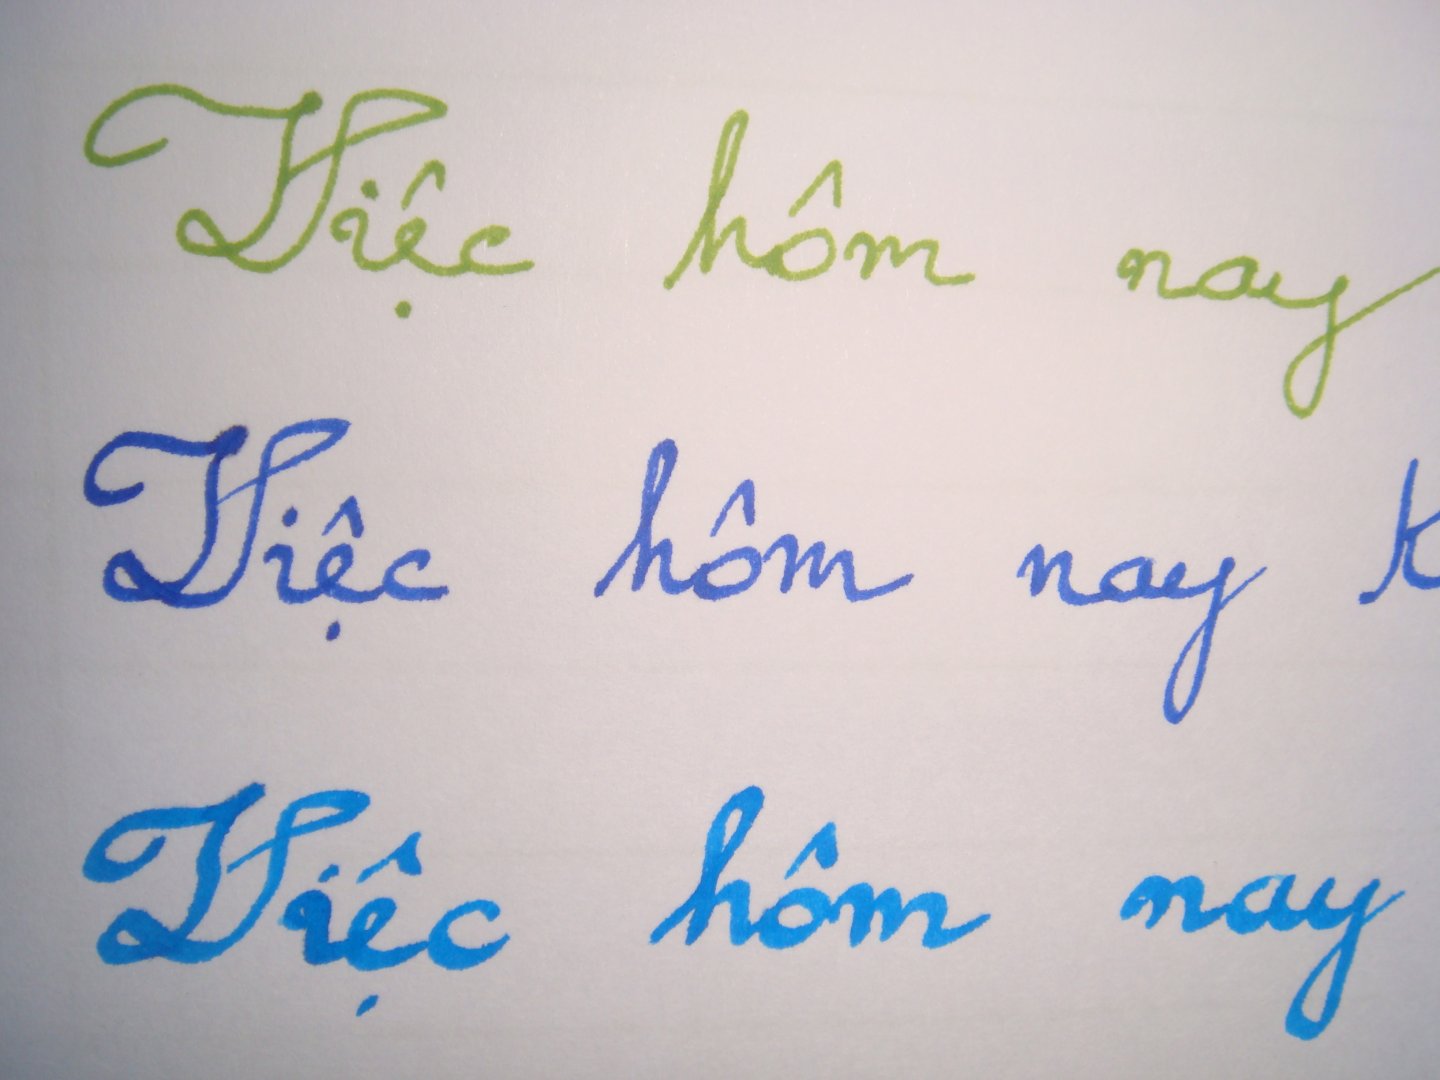 Việc hôm nay
Việc hôm nay k
Việc hôm nay